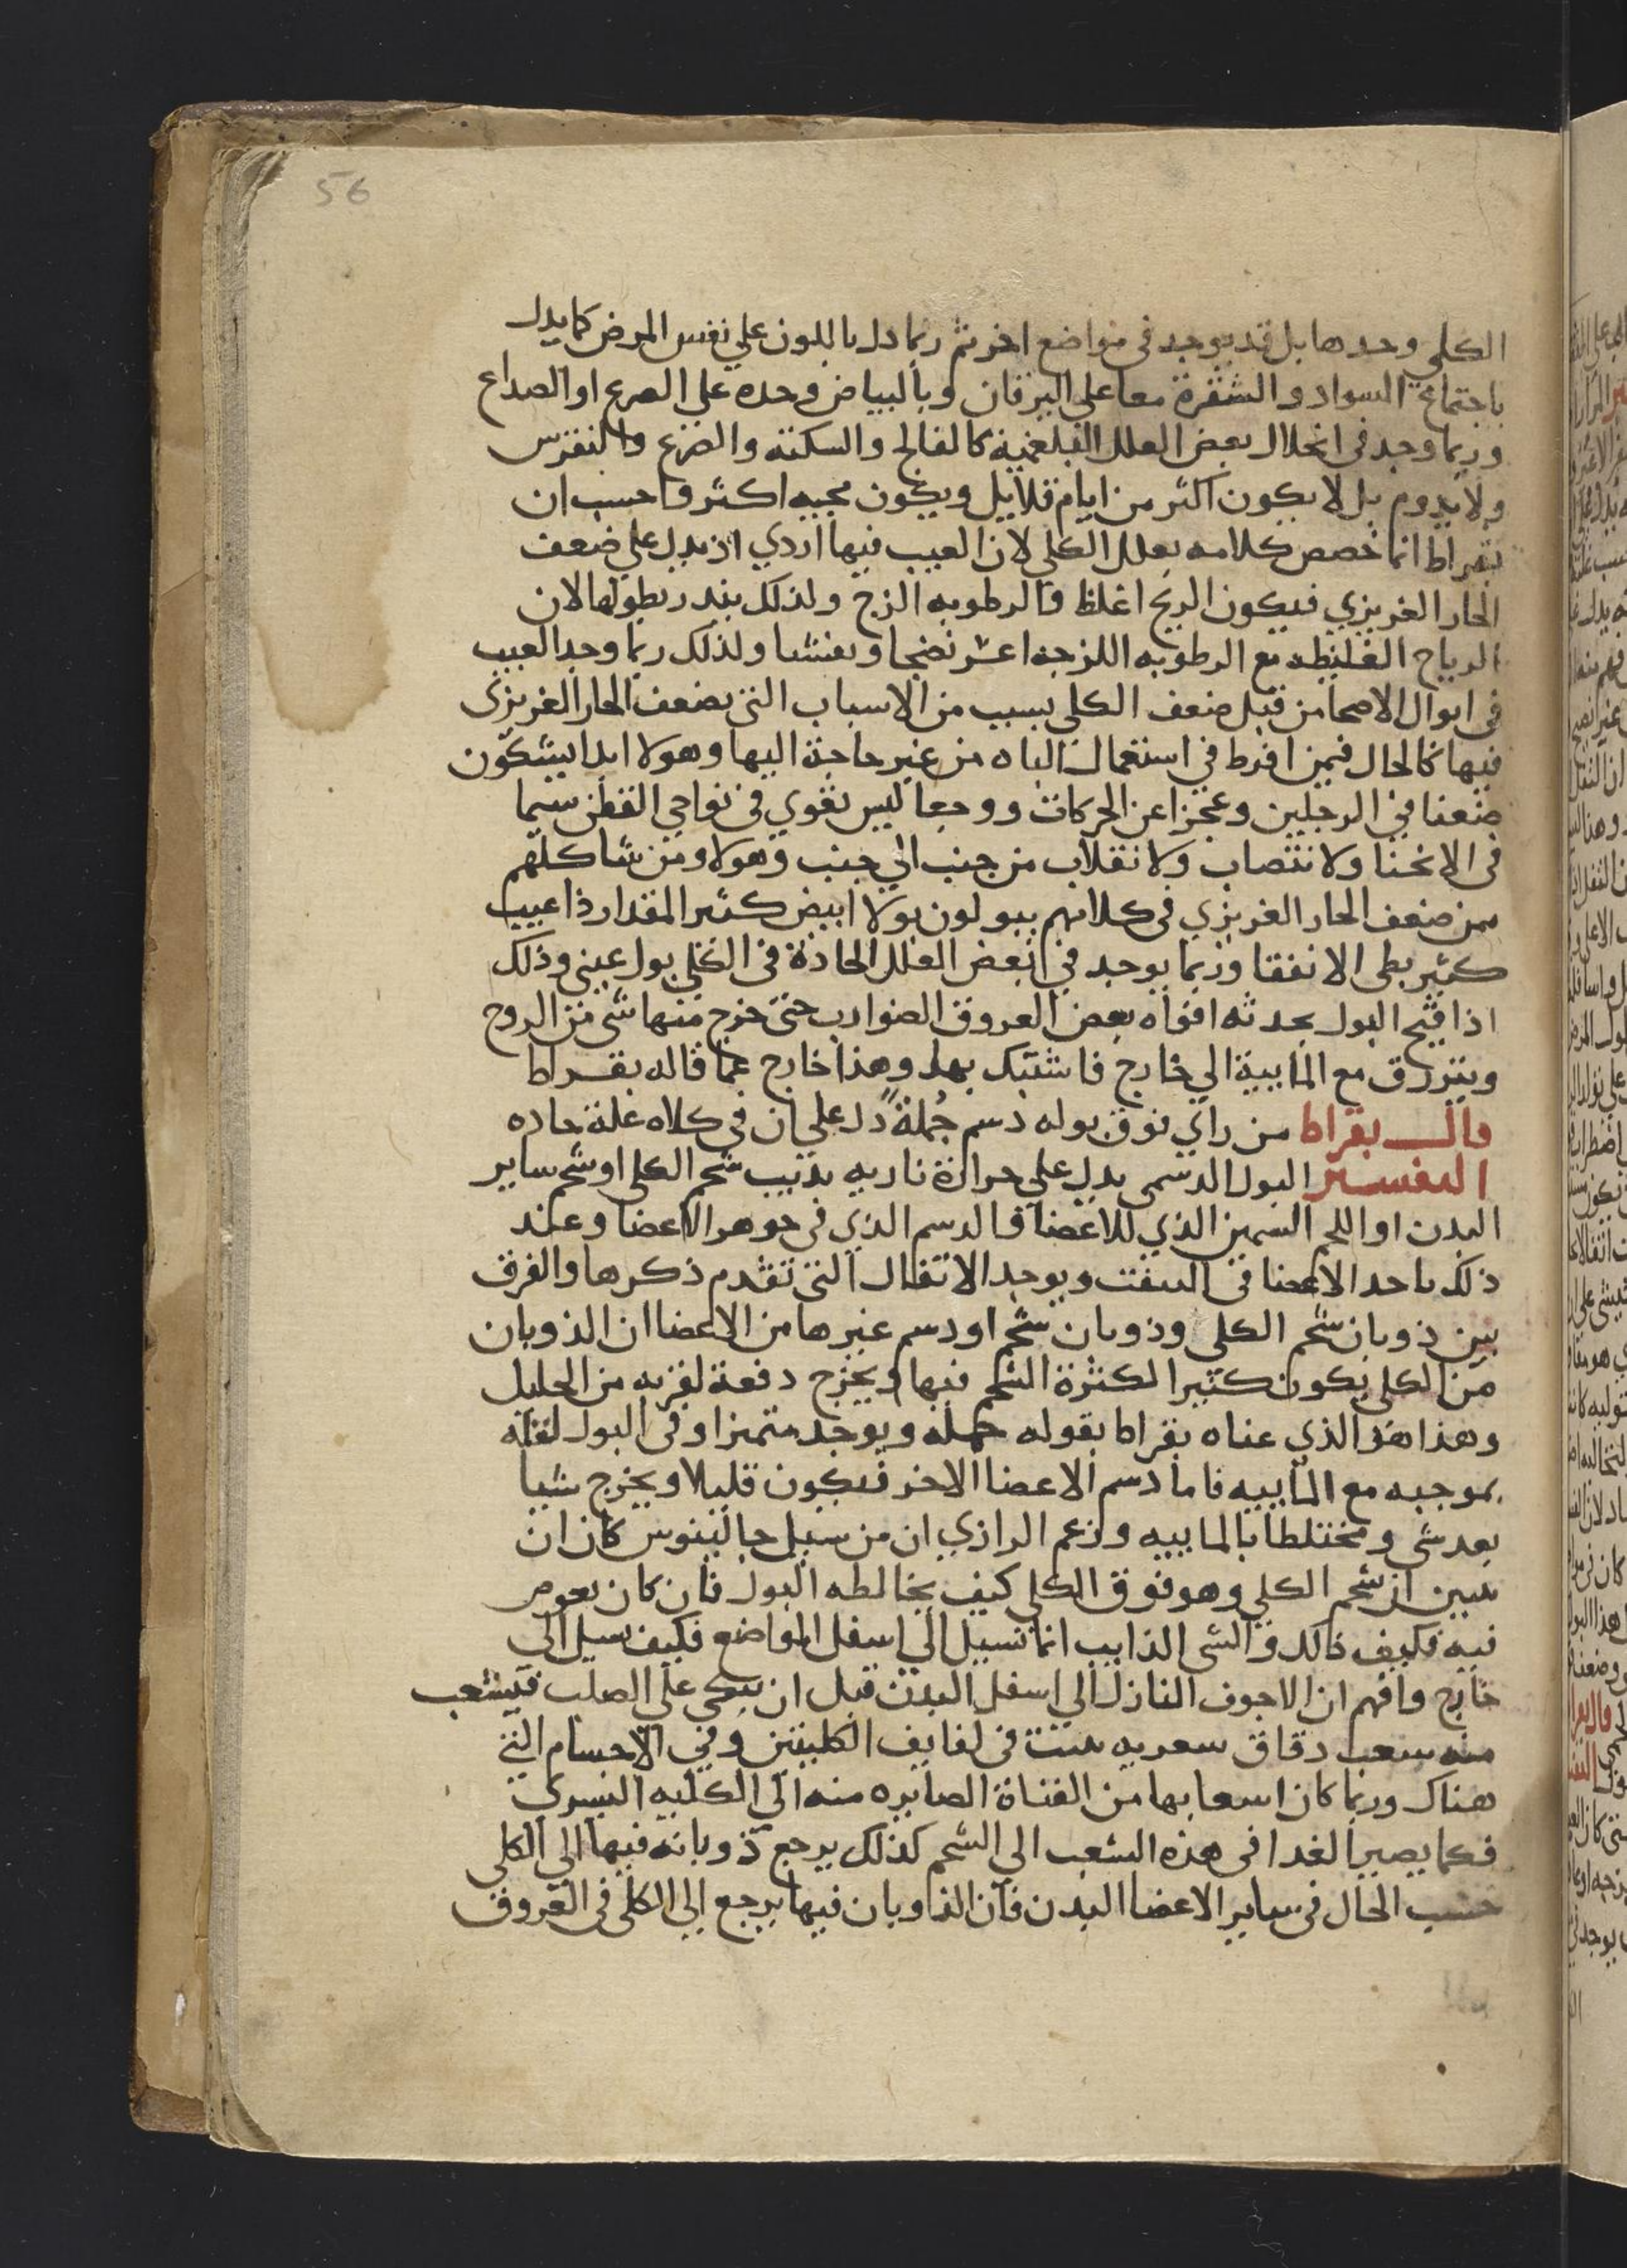 56
الكلي وحدها بل قد يوجد في مواضع اخر ثم ربما دل باللون علي نفس المرض كما يدل
باجتماع السواد والشقرة معا علي اليرقان وبالبياض وحده علي الصرع او الصداع
وربما وجد في انحلال بعض العلل البلغمية كالفالج والسكته والصرع والنقرس
ولا يدوم بل لا يكون اكثر من ايام قلايل ويكون مجيه اكثر واحسب ان
بقراط انما خصص كلامه بعلل الكلي لان العبب فيها اردي اذ يدل علي ضعف
الحار الغريزي فيكون الريح اغلظ والرطوبه الزج ولذلك ينذر بطولها لان
الرياح الغليظه مع الرطوبه اللزجة اعسر نضجا وتفششا ولذلك ربما وجد العبب
في ابوال الاصحا من قبل ضعف الكلي بسبب من الاسباب التي تضعف الحار الغريزي
فيها كالحال فيمن افرط في استعمال الباه من غير حاجة اليها وهولا ابدا يشكون
ضعفا في الرجلين وعجزا عن الحركات ووجعا ليس بقوي في نواحي القطن سيما
في الانحنا ولانتصاب ولانقلاب من جنب الي جنب وهولا ومن شاكلهم
ممن ضعف الحار الغريزي في كلاهم يبولون بولا ابيض كثير المقدار ذا عبب
كثير بطي الانفقا وربما يوجد في بعض العلل الحادة في الكلي بول عببي وذلك
اذا فتح البول بحدته افواه بعض العروق الضوارب حتي خرج منها شي من الروح
ويتزرق مع المايية الي خارج فاشتبك بها وهذا خارج عما قاله بقراط
قال بقراط من راي فوق بوله دسم جُملةً دل علي ان في كلاه علة حاده
التفسير البول الدسمي يدل علي حرارة ناريه تذيب شحم الكلي او شحم ساير
البدن او اللحم السمين الذي للاعضا فالدسم الذي في جوهر الاعضا وعند
ذلك ياحد الاعضا في التفتت ويوجد الاتفال التي تقدم ذكرها والفرق
بين ذوبان شحم الكلي وذوبان شحم او دسم غيرها من الاعضا ان الذوبان
من الكلي يكون كثيرا لكثرة الشحم فيها ويخرج دفعة لقربه من الحليل
وهذا هو الذي عناه بقراط بقوله جملة ويوجد متميزا وفي البول لقلة
بموجبه مع المايية فاما دسم الاعضا الاخر فيكون قليلا ويخرج شيا
بعد شي ومختلطا بالماييه وزعم الرازي ان من سبيل جالينوس كان ان
يبين ان شحم الكلي وهو فوق الكلي كيف يخالطه البول فان كان يغوص
فيه فكيف ذالك والشي الذايب انما تسيل الي اسفل المواضع فكيف سيل الي
خارج وافهم ان الاجوف النازل الي اسفل البدن قبل ان يتكي علي الصلب فيتشعب
منه شعب دقاق شعريه تنبت في لفايف الكليتين وفي الاجسام التي
هناك وربما كان اسعابها من القناة الصايره منه الي الكليه اليسري
فكما يصير الغدا في هذه الشعب الي الشحم كذلك يرجع ذوبانه فيها الي الكلي
حسب الحال في ساير الاعضا البدن فان الذاوبان فيها يرجع الي الكلي في العروق